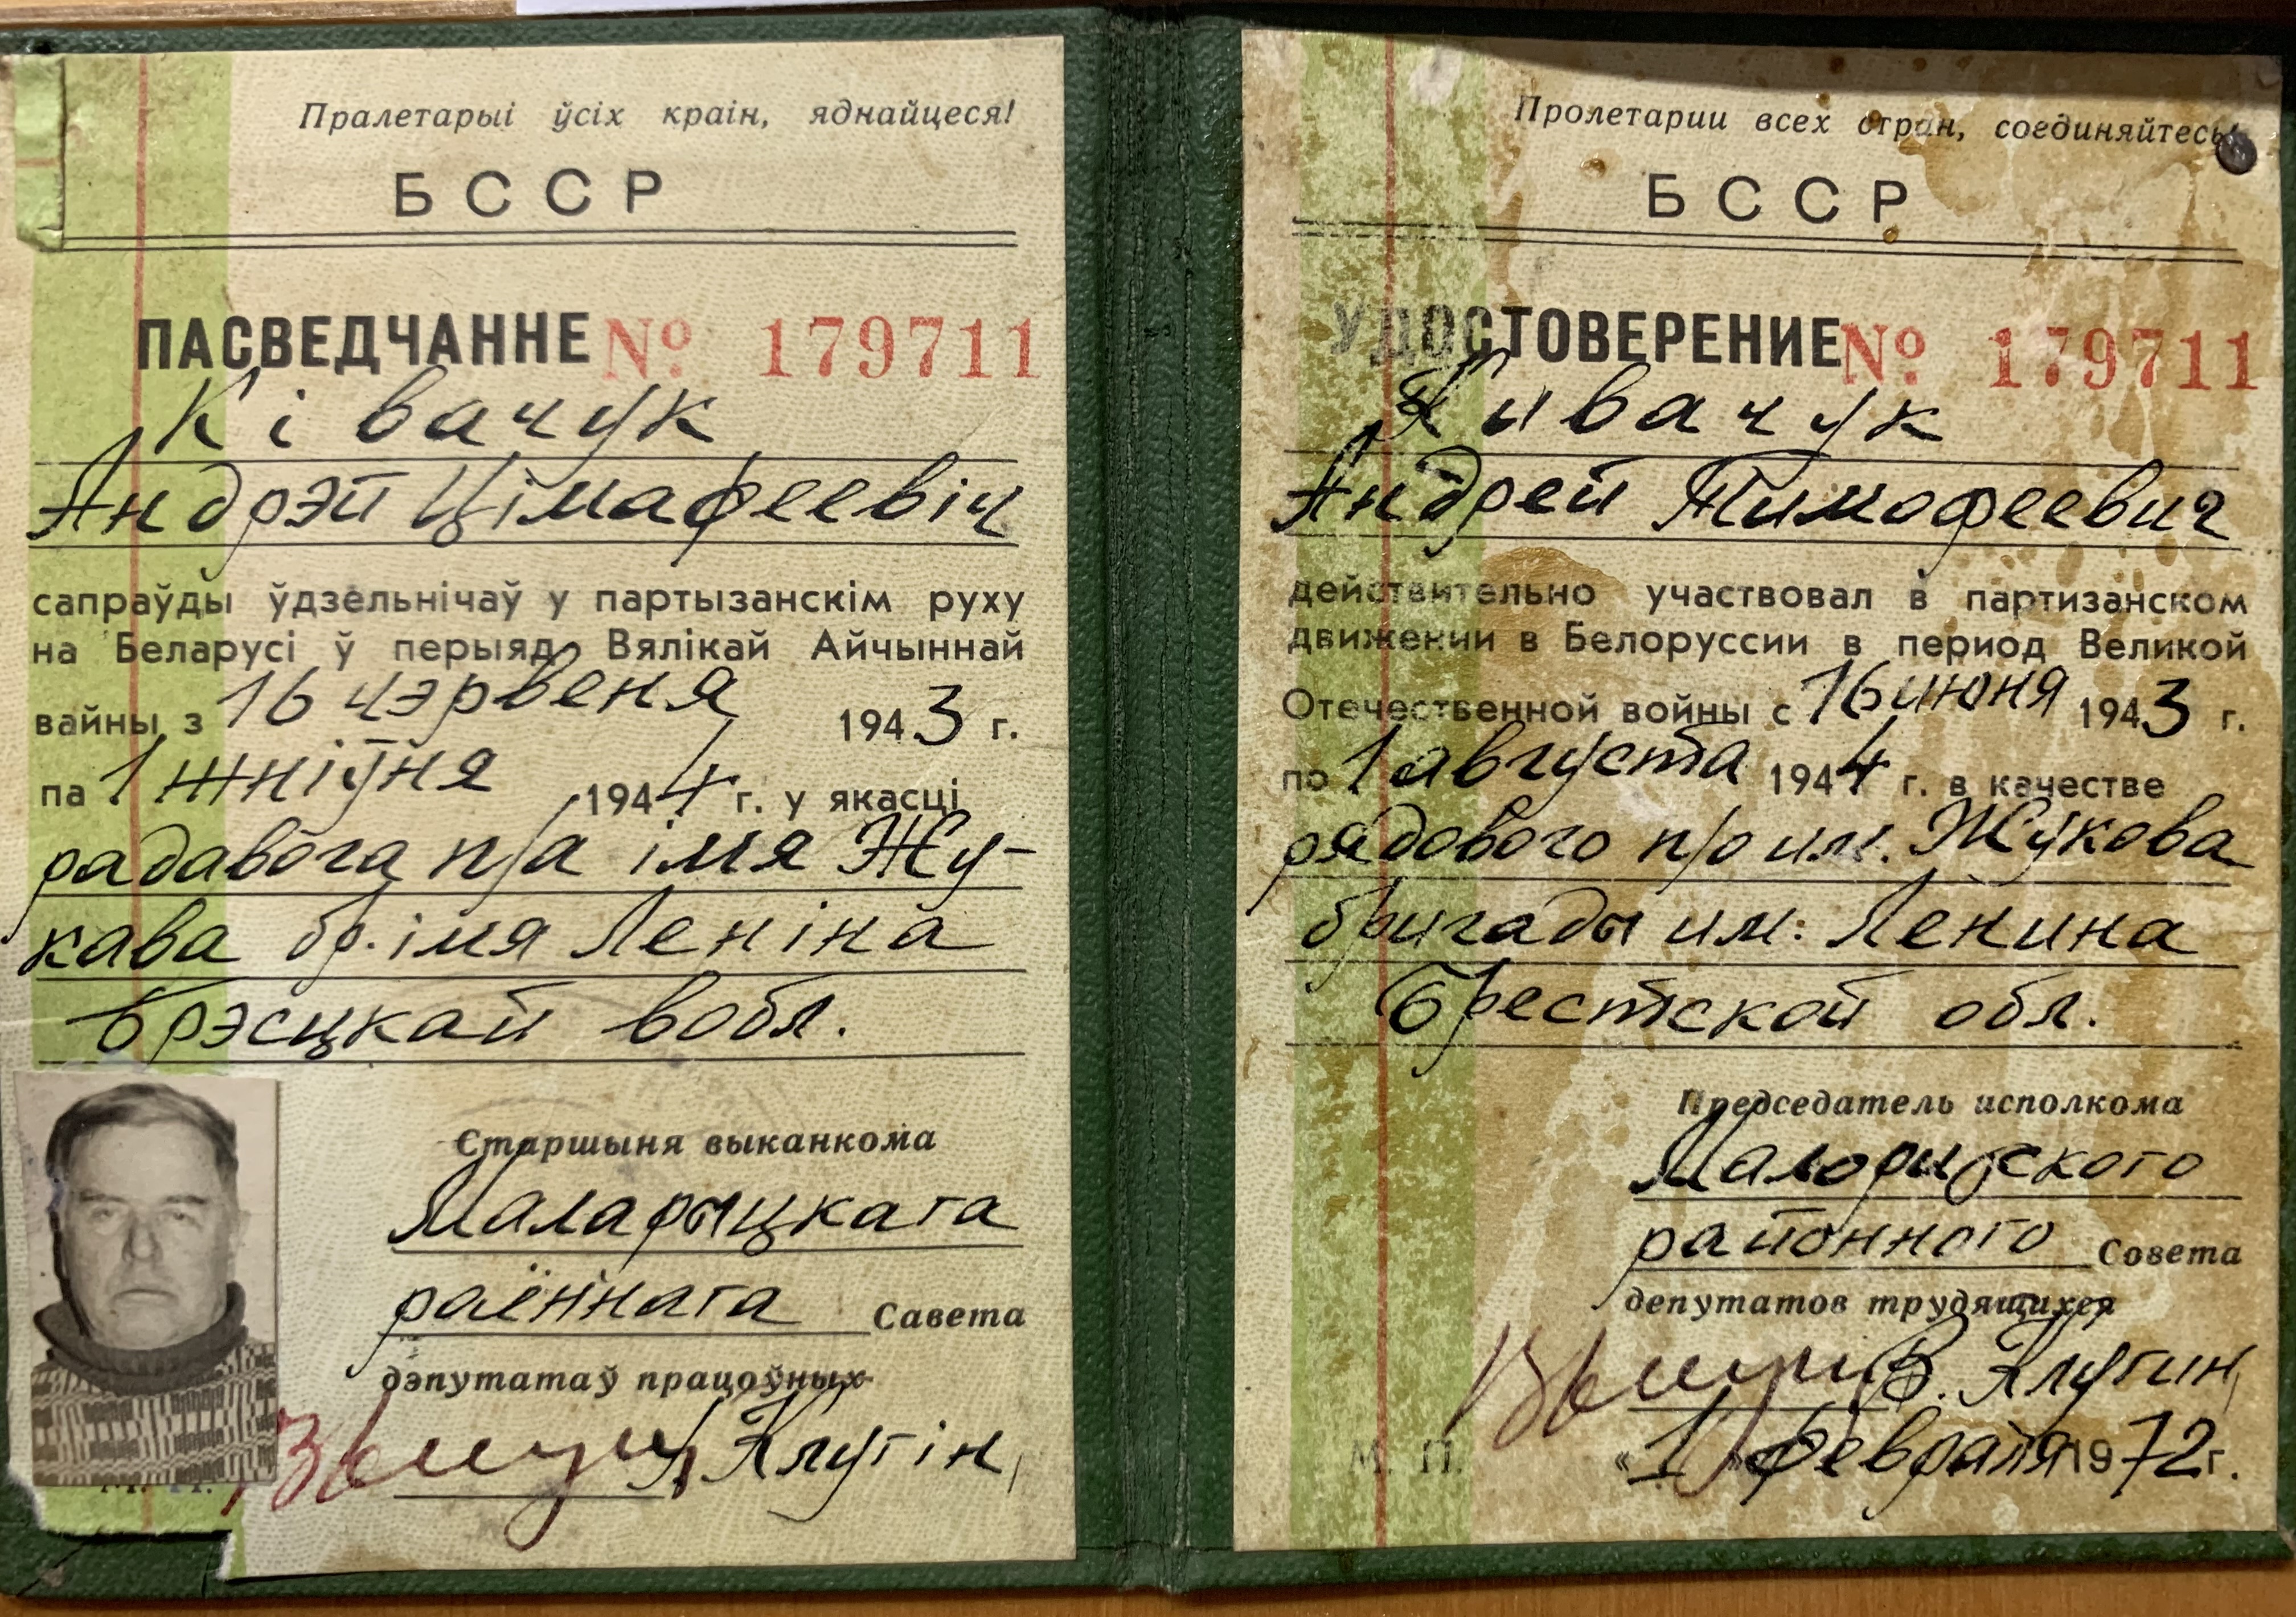 Пралетарыі ўсіх краін, яднайцеся!
БССР
ПАСВЕДЧАННЕ № 179711
Ківачук
Андрэй Цімафеевіч
сапраўды ўдзельнічаў у партызанскім руху
на Беларусі ў перыяд Вялікай Айчыннай
вайны з 16 чэрвеня 1943 г.
па 1 жніўня 1944 г. у якасці
радавога п/а імя Жу-
кава бр. імя Леніна
Брэсцкай вобл.
Старшыня выканкома
Маларыцкага
раённага Савета
дэпутатаў працоўных
Клугін
М. П.
Пролетарии всех стран, соединяйтесь!
БССР
УДОСТОВЕРЕНИЕ № 179711
Кывачук
Андрей Тимофеевич
действительно участвовал в партизанском
движении в Белоруссии в период Великой
Отечественной войны с 16 июня 1943 г.
по 1 августа 1944 г. в качестве
рядового п/о им. Жукова
бригады им. Ленина
Брестской обл.
Председатель исполкома
Малоритского
районного Совета
депутатов трудящихся
В. Клугин
М. П. «1» февраля 1972 г.